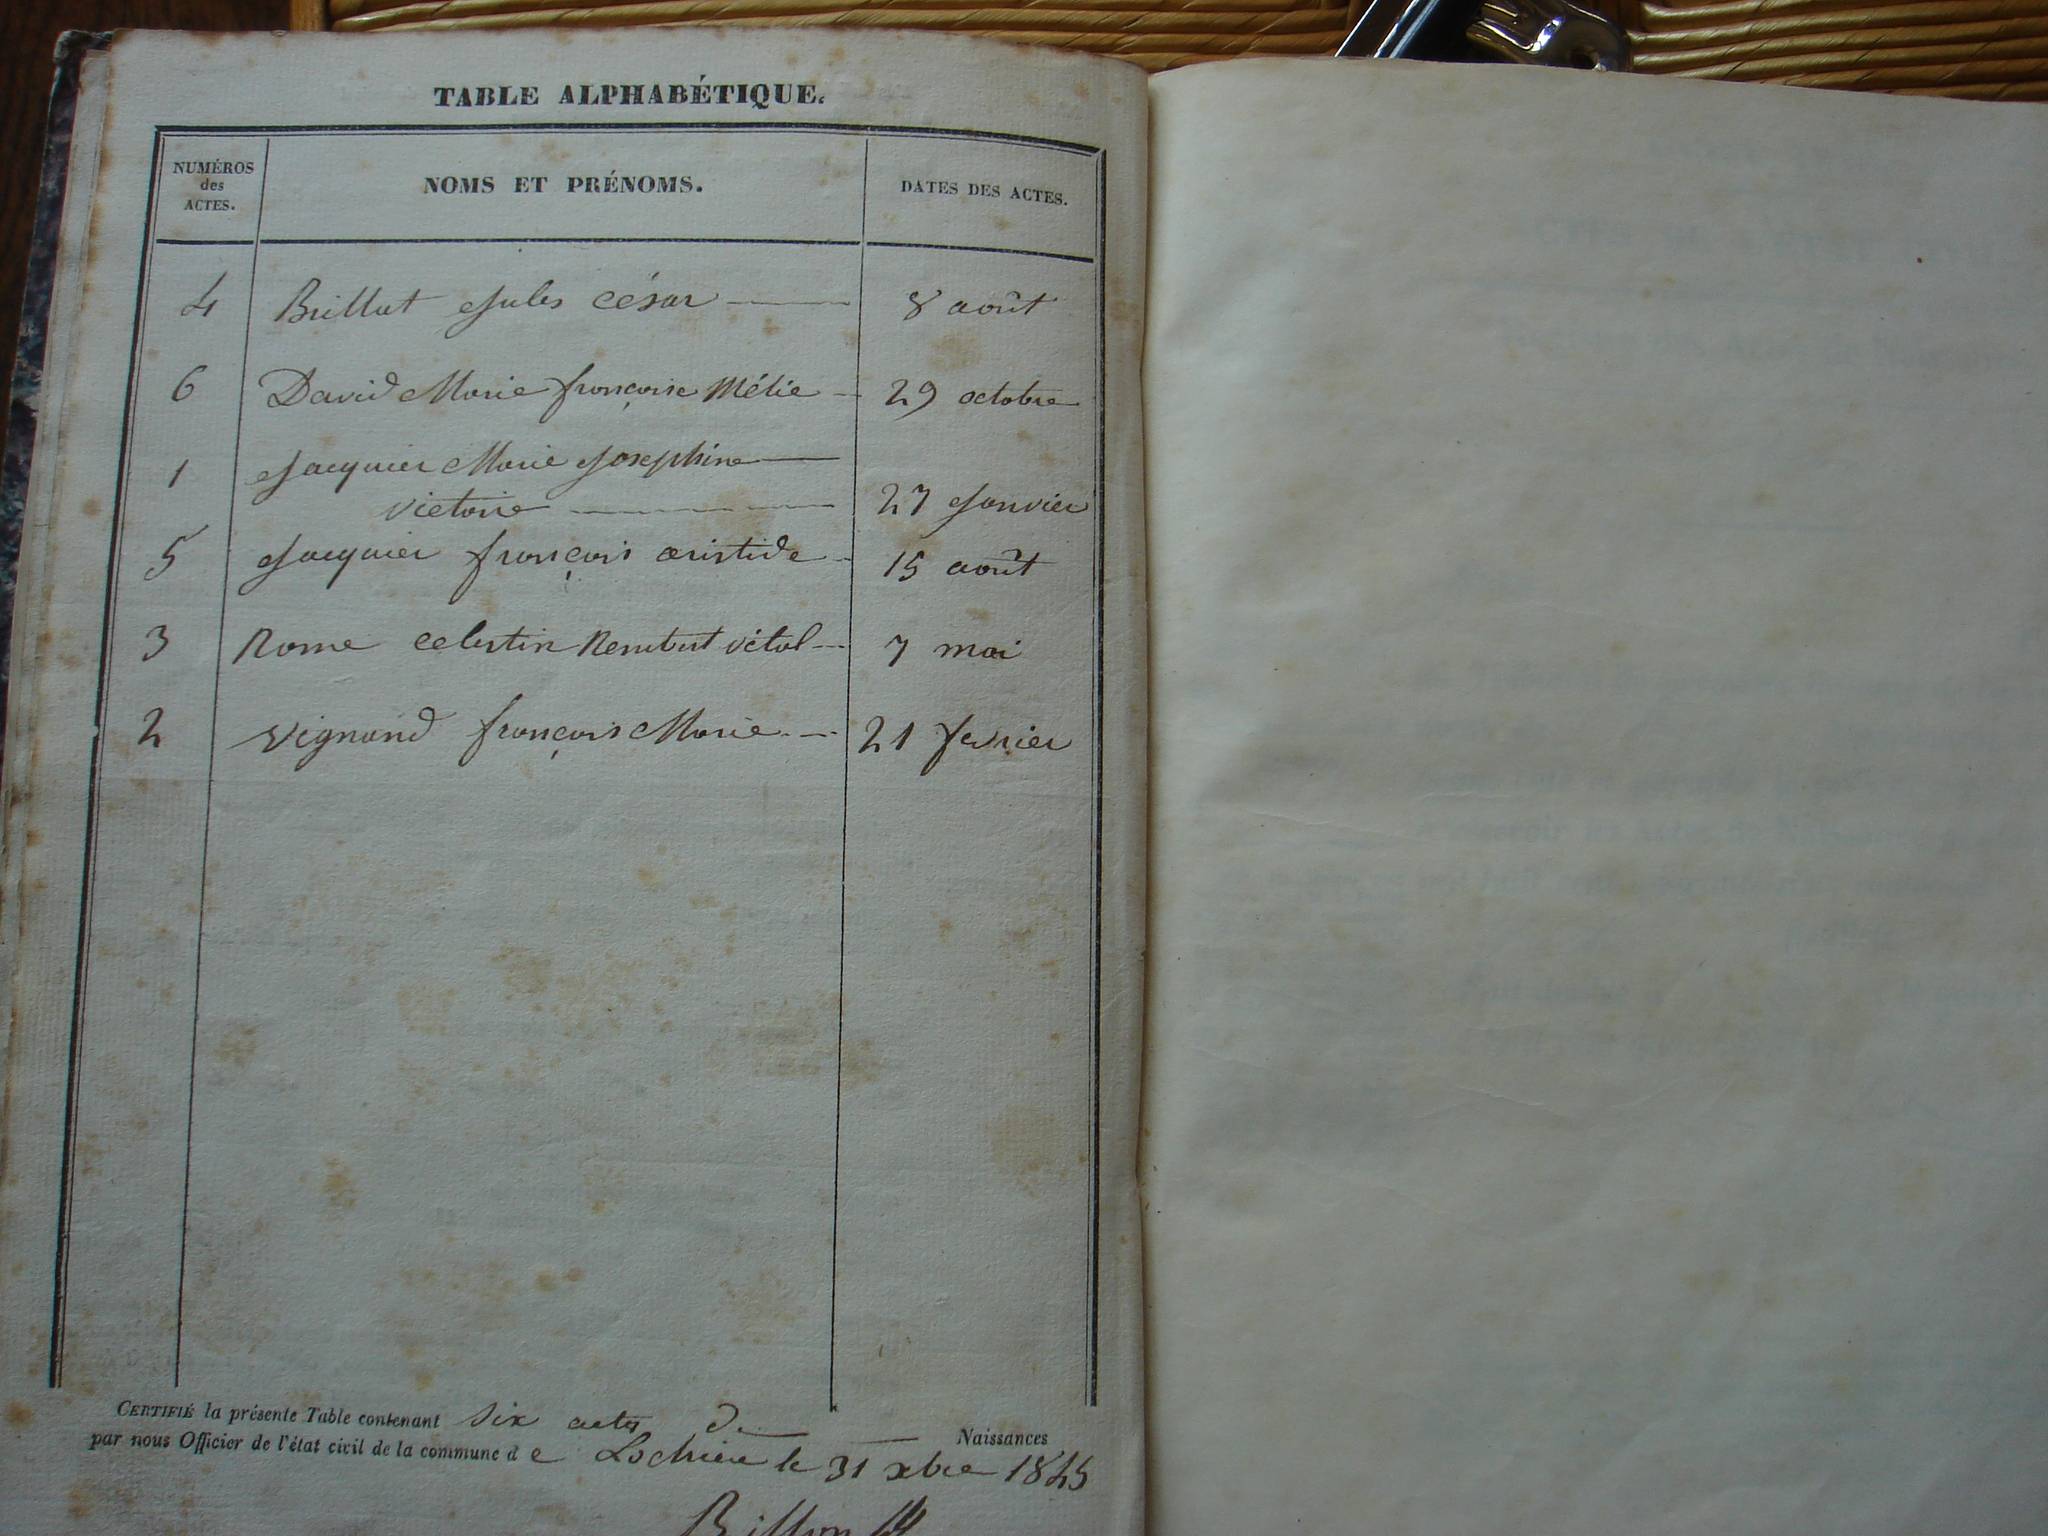 TABLE ALPHABÉTIQUE.
NUMÉROS des ACTES. NOMS ET PRÉNOMS. DATES DES ACTES.
4 Brillat Jules César 8 août
6 David Marie françoise Mélie 29 octobre
1 Jacquier Marie Josephine
victoire 27 Janvier
5 Jacquier françois aristide 15 août
3 Rome celestin Rembert vital 7 mai
2 Vignand françois Marie 21 fevrier
CERTIFIÉ la présente Table contenant six actes de Naissances
par nous Officier de l'état civil de la commune de Lochieu le 31 xbre 1845